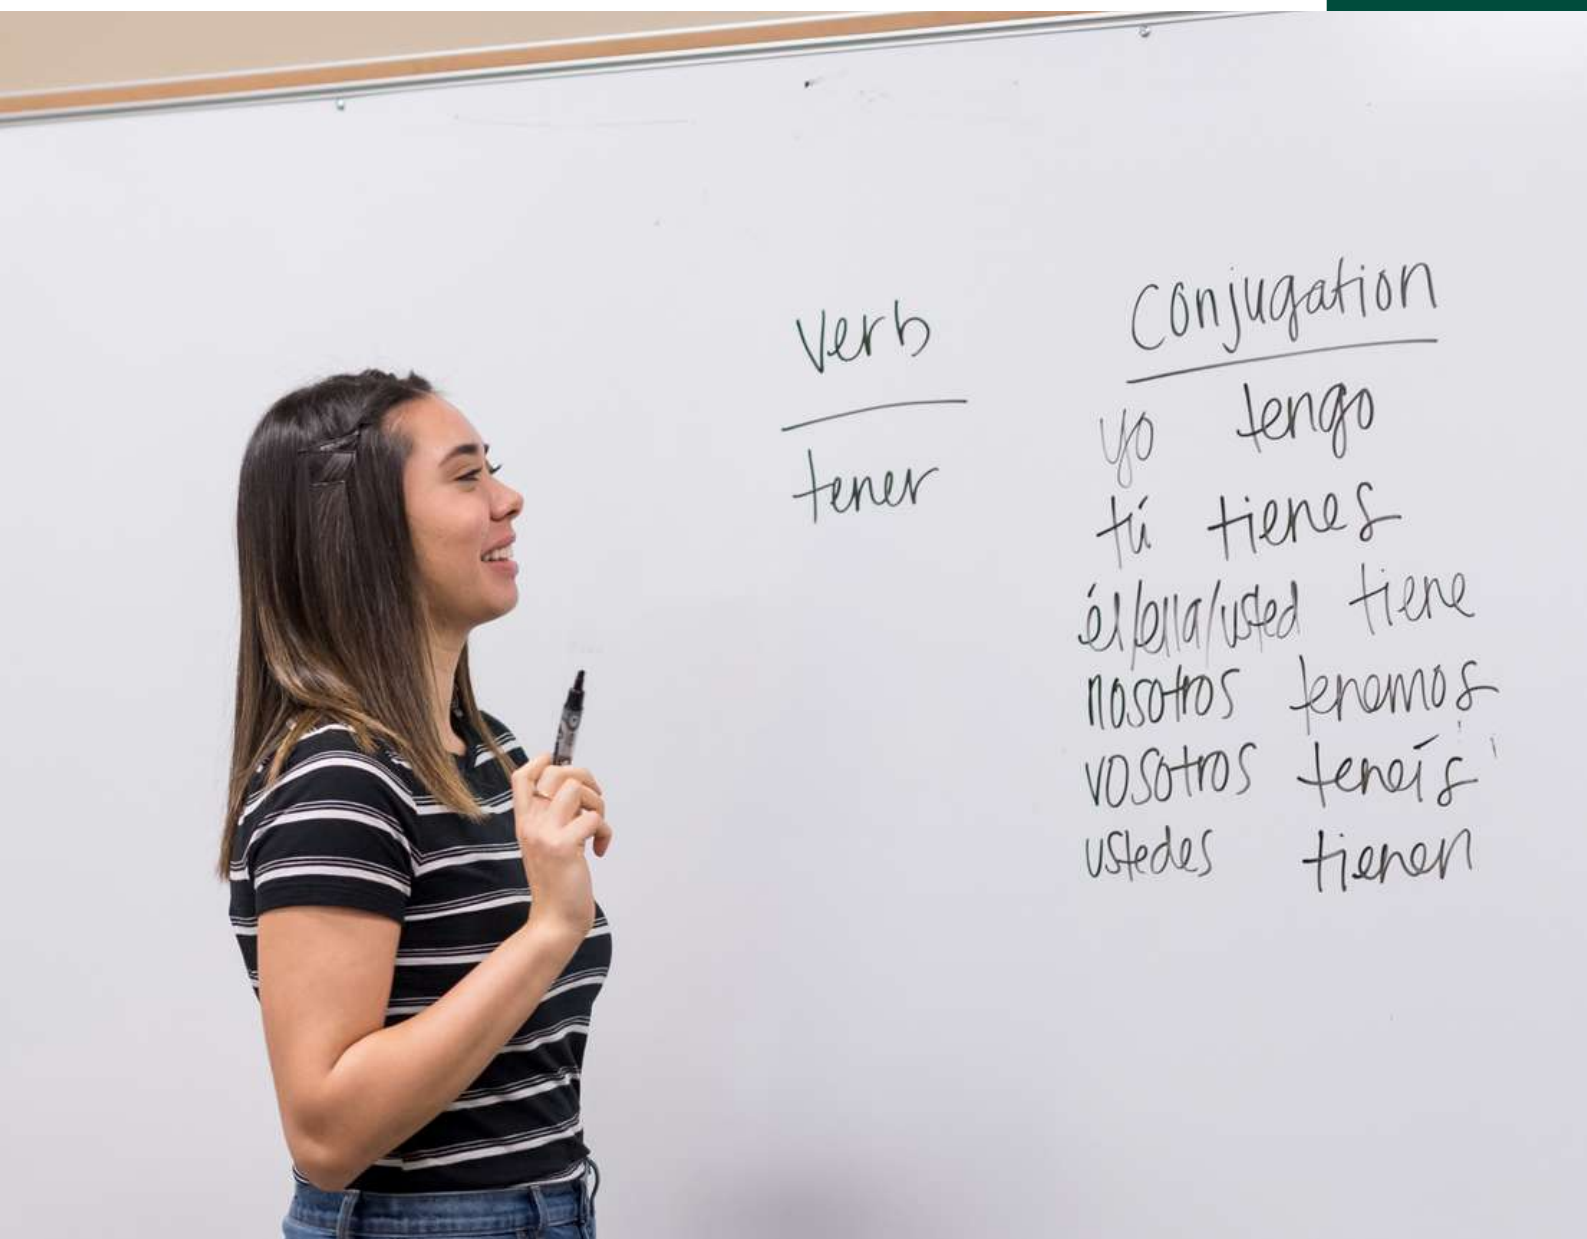 verb
tener
Conjugation
yo tengo
tú tienes
él/ella/usted tiene
nosotros tenemos
vosotros teneís
ustedes tienen